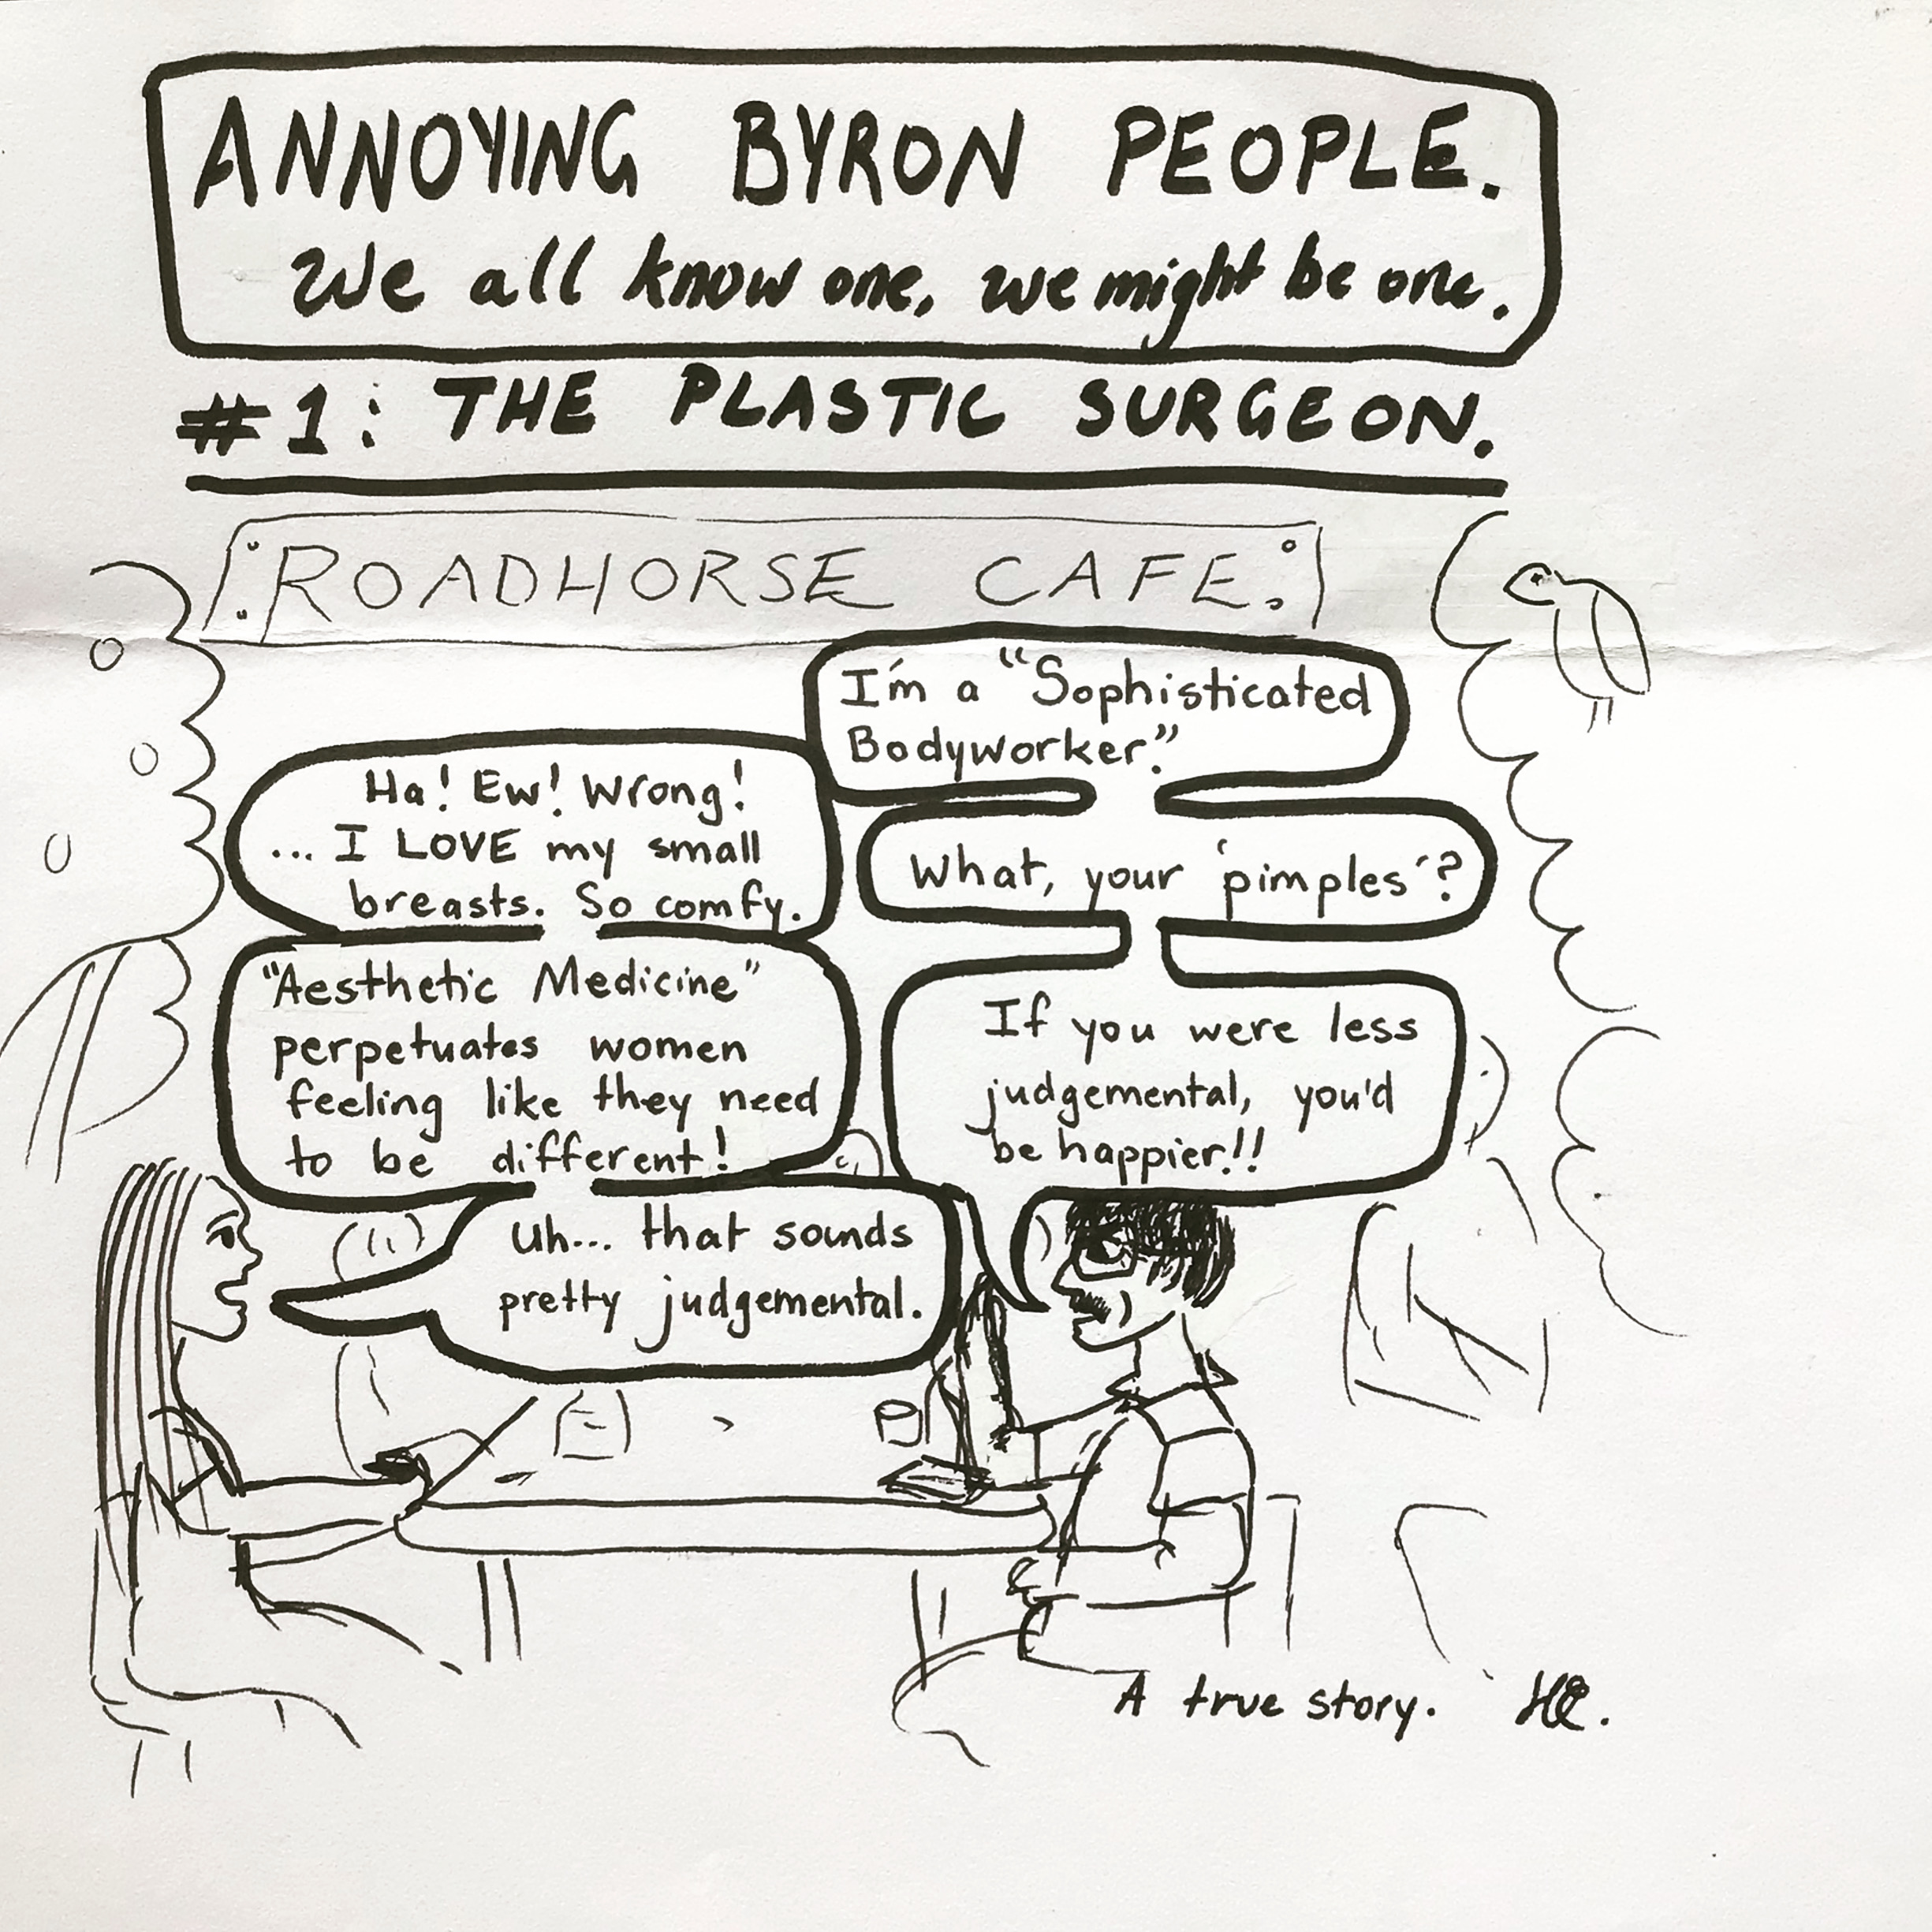 ANNOYING BYRON PEOPLE.
We all know one, we might be one.
#1: THE PLASTIC SURGEON.
ROADHORSE CAFE.
I'm a "Sophisticated
Bodyworker."
Ha! Ew! Wrong!
... I LOVE my small
breasts. So comfy.
What, your 'pimples'?
"Aesthetic Medicine"
perpetuates women
feeling like they need
to be different!
If you were less
judgemental, you'd
be happier!!
Uh... that sounds
pretty judgemental.
A true story.